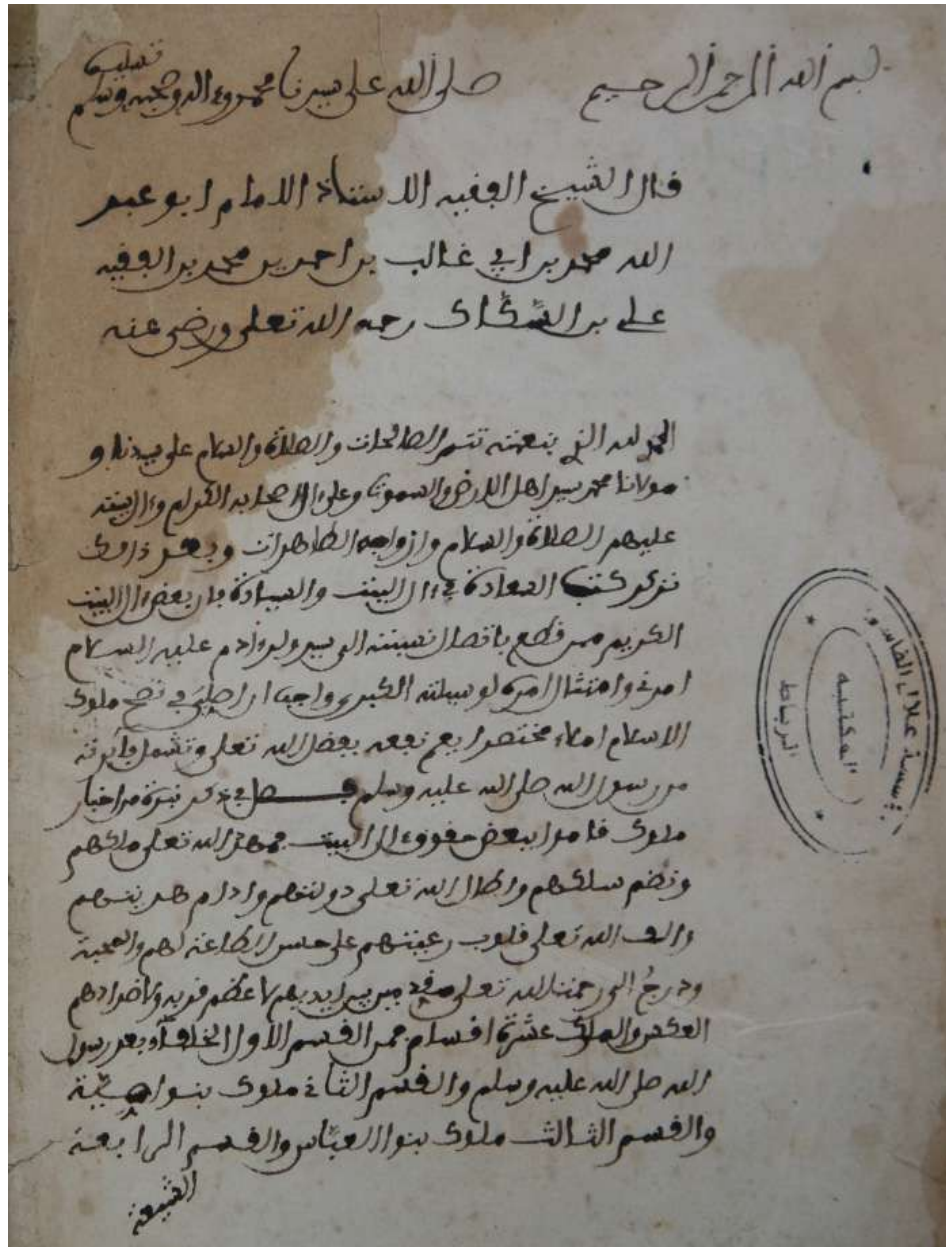 بسم الله الرحمن الرحيم صلى الله على سيدنا محمد وءاله وصحبه وسلم
تسليما
قال الشيخ الفقيه الاستاذ الامام ابو عبد
الله محمد بن ابي غالب بن احمد بن محمد بن الفقيه
علي بن السكاك رحمه الله تعلى ورضي عنه
الحمد لله الذي بنعمته تتم الصالحات والصلاة والسلام على سيدنا و
مولانا محمد سيد اهل الارض والسموت وعلى اله واصحابه الكرام وءال بيته
عليهم الصلاة والسلام وازواجه الطاهرات وبعد
السعادة في ءال البيت والسيادة فان بعض ءال البيت
الكريم ممن قطع باتصال نسبته الى سيد ولد ءادم عليه السلام
امرني وامتثال امره لوسيلته الكبرى واجب ان في نصح ملوك
الاسلام املاء مختصرا يعم نفعه بفضل الله تعلى وتشمل
من رسول الله صلى الله عليه وسلم فصل في ذكر نبذة من اخبار
ملوك قاموا ببعض حقوق ءال البيت فمهد الله تعلى ملكهم
ونظم سلكهم واطال الله تعلى دولتهم وادام هدنتهم
والف الله تعلى قلوب رعيتهم على حسن الطاعة لهم والمحبة
الى رحمة الله تعلى من بين ايديهم لاعظم قربة ولاضدادهم
العكس والملوك عشرة اقسام فمن القسم الاول الخلفاء بعد رسول
الله صلى الله عليه وسلم والقسم الثاني ملوك بنوا امية
والقسم الثالث ملوك بنوا العباس والقسم الرابع
الشيعة
مؤسسة علال الفاسي
المكتبة
الرباط